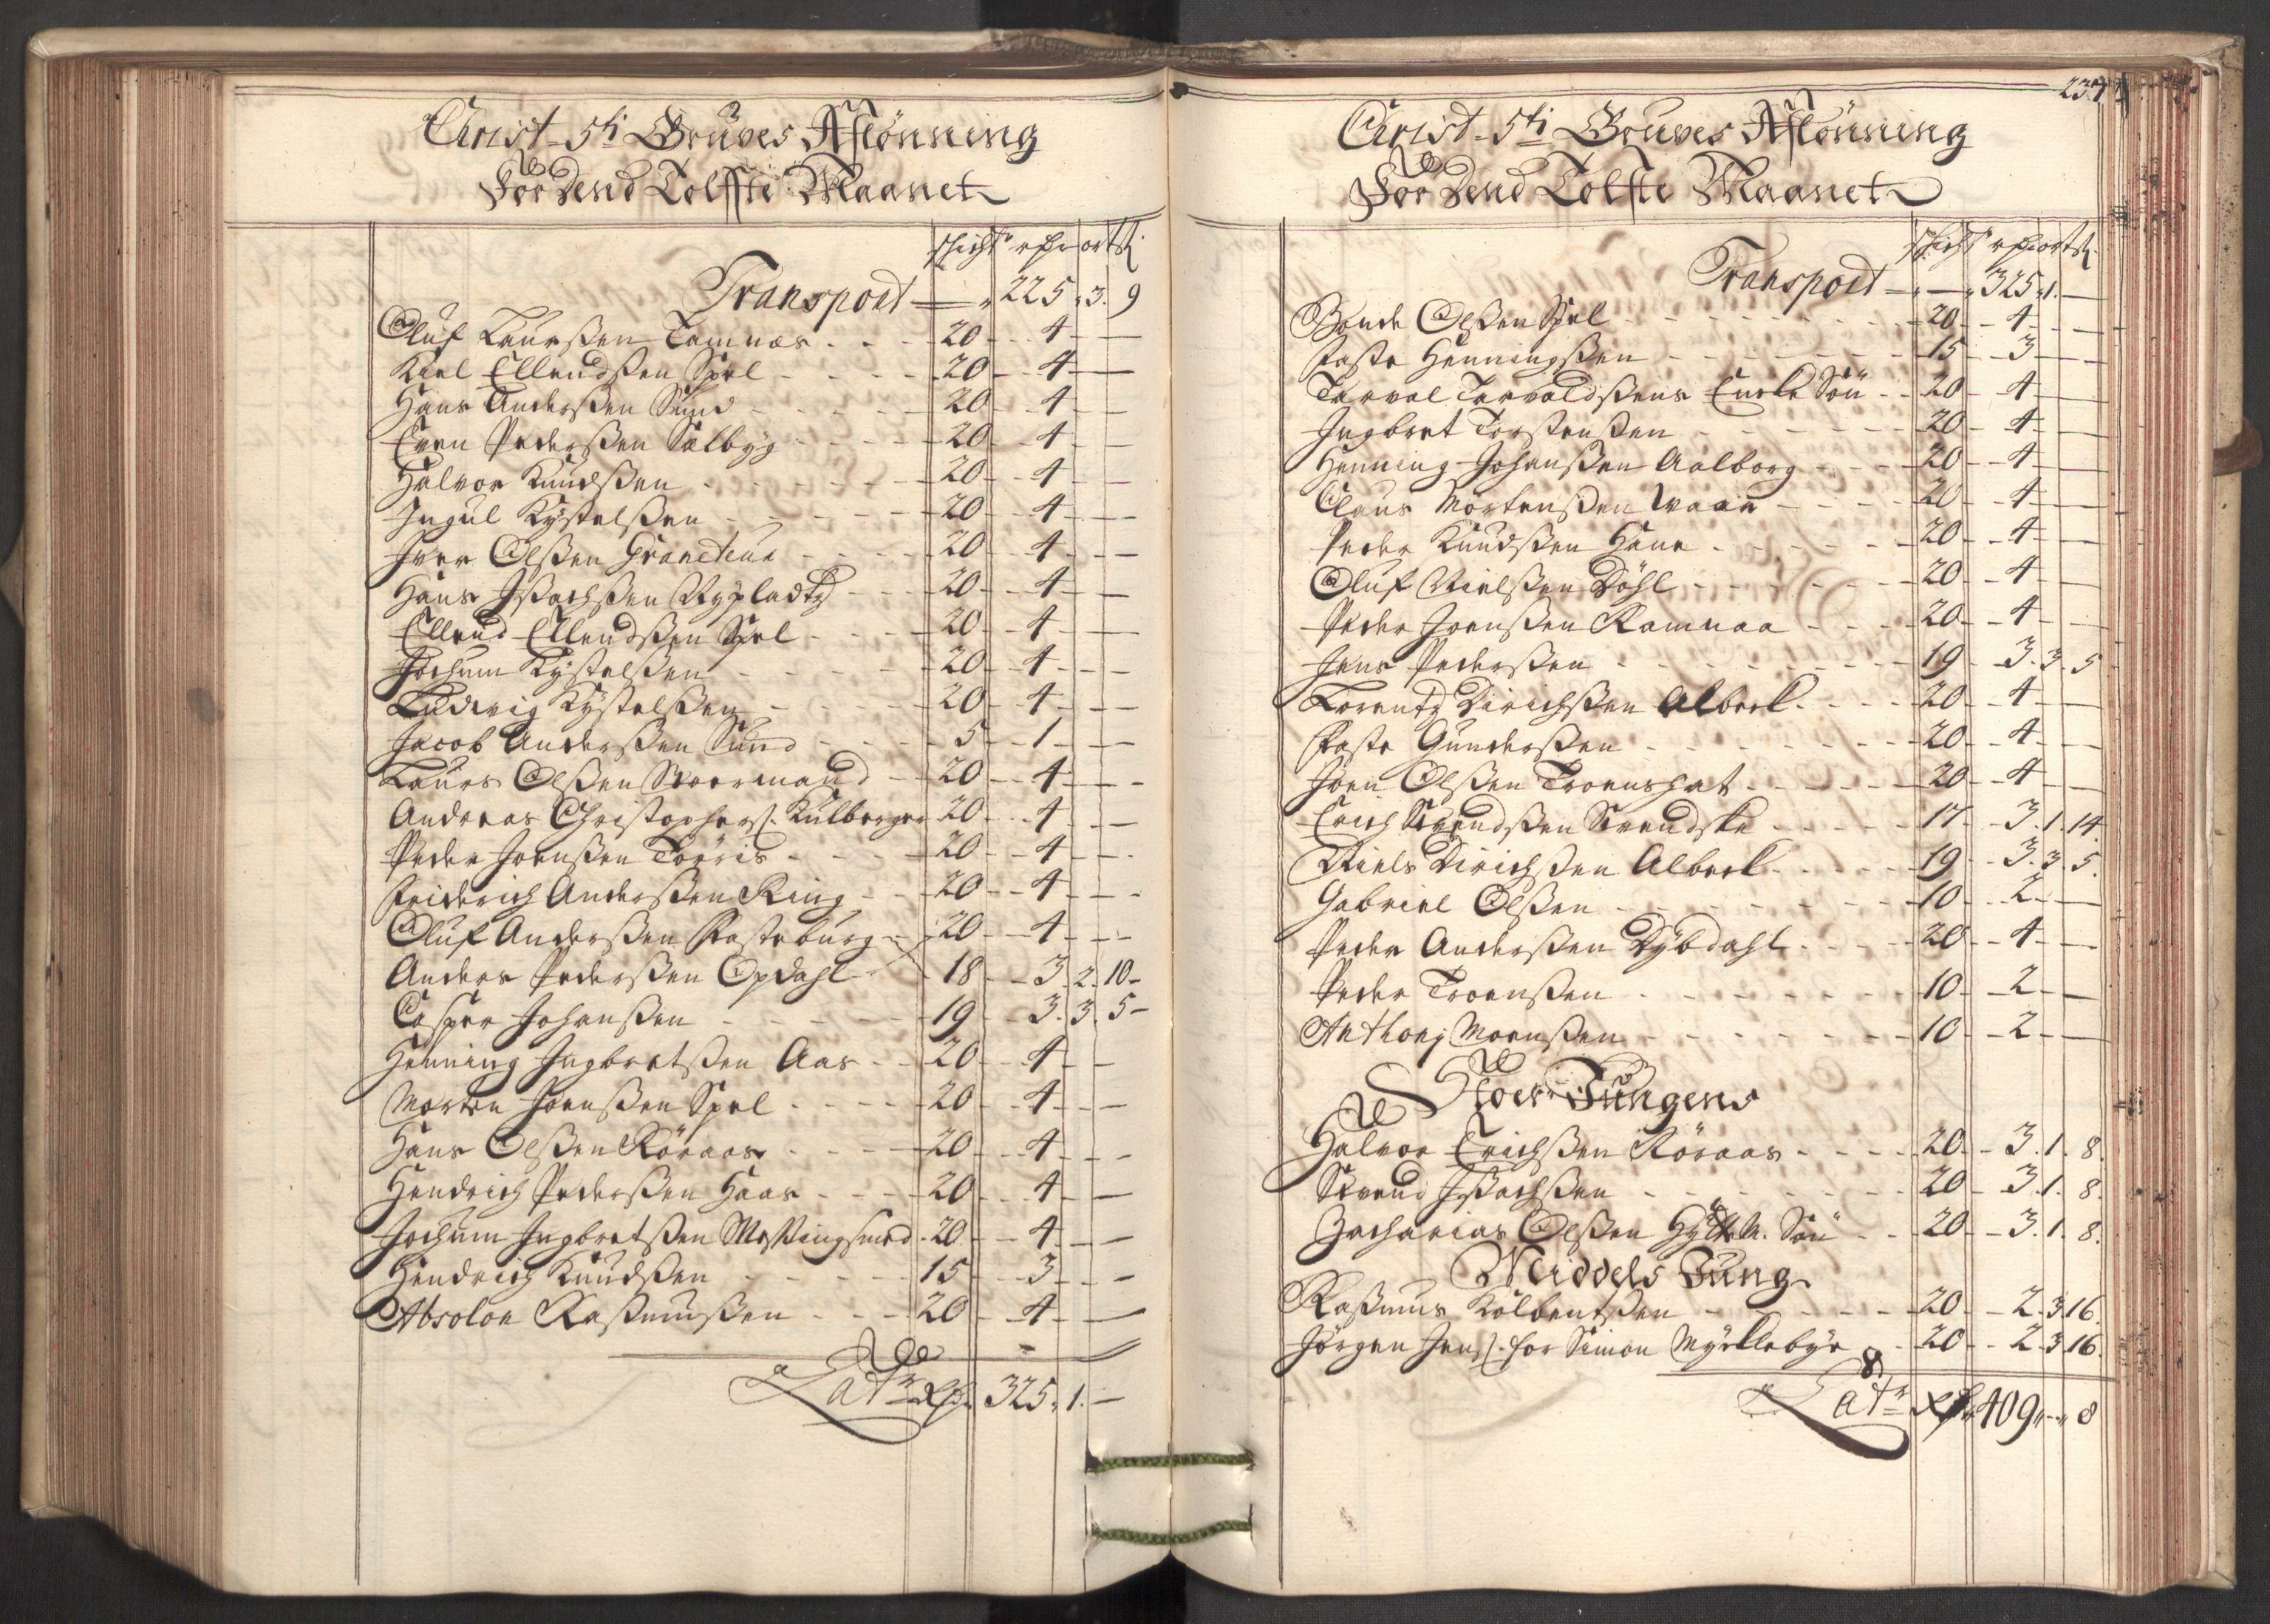 Christ- 5ti Gruves Aflønning
For Dend Tolffte Maanet
shicht rdr ort ß
Transport — „ 225 „ 3. 9
Oluf Laurßen Tamnes 20 4
Kiel Ellendßen Spel 20 4
Hans Anderßen Sund 20 4
Even Pederßen Sælbyg 20 4
Halvor Knudßen 20 4
Ingul Kystelßen 20 4
Iver Olßen 20 4
Hans Ißachßen Nypladtz 20 4
Ellend Ellendßen Spel 20 4
Jochum Kystelßen 20 4
Ludvig Kystelßen 20 4
Jacob Anderßen Sund 5 1
Laurs Olßen Stoormand 20 4
Andreas Christophers. Kulberger 20 4
Peder Joenßen Tøøris 20 4
Friderich Anderßen Ring 20 4
Oluf Anderßen Fasteburg 20 4
Anders Pederßen Opdahl 18 3. 2. 10
Casper Johanßen 19 3. 3. 5
Henning Ingbretßen Aas 20 4
Morten Joenßen Spel 20 4
Hans Olßen Røraas 20 4
Hendrich Pederßen Haas 20 4
Jochum Ingbretßen Meßingsmed 20 4
Hendrich Knudßen 15 3
Absolon Raßmusßen 20 4
Lat: Rdr 325 „ 1. —
237
Christ- 5ti Gruves Aflønning
For Dend Tolfte Maanet
shicht rdr ort ß
Transport — „ — „ 325 „ 1. —
Bonde Olßen Spel 20 4
Faste Henningßen 15 3
Tarval Tarvaldßens Enke Søn 20 4
Ingbret Torstenßen 20 4
Henning Johanßen Aalborg 20 4
Claus Mortenßen Waan 20 4
Peder Knudßen Hane 20 4
Oluf Nielßen Døhl 20 4
Peder Joenßen Ramnaa 20 4
Jens Pederßen 19 3. 3. 5
Lorentz Dirichßen Albrek 20 4
Faste Gunderßen 20 4
Joen Olßen Troenshat 20 4
Erich Svendßen Svendske 17 3. 1. 14
Niels Dirichßen Albrek 19 3. 3. 5
Gabriel Olßen 10 2
Peder Anderßen Dybdahl 20 4
Peder Troenßen 10 2
Anthony Moenßen 10 2
Stoer Jungens
Halvor Erichßen Røraas 20 3. 1. 8
Svend Ißachßen 20 3. 1. 8
Zacharias Olßen Søn 20 3. 1. 8
Middels Jung
Raßmus Kolbentßen 20 2. 3. 16
Jørgen Jens. for Simon Myklebye 20 2. 3. 16
Lat: Rdr 409 „ — „ 8